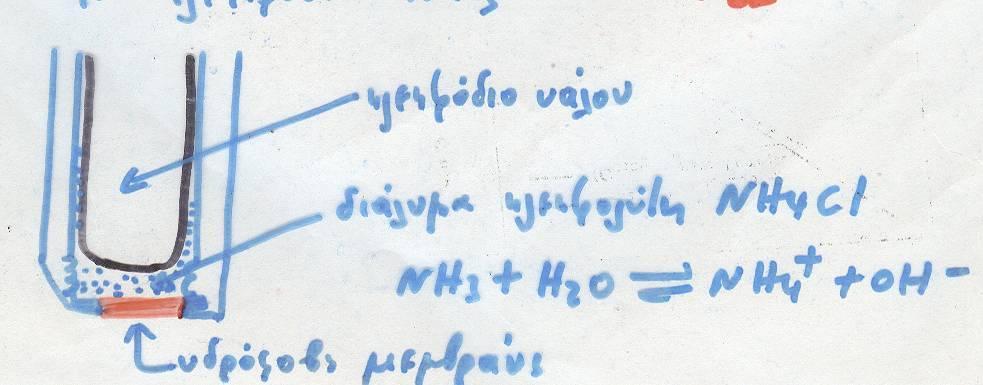 ηλεκτρόδιο υάλου
διάλυμα ηλεκτρολύτη NH4Cl
NH3 + H2O ⇌ NH4+ + OH-
υδρόφοβη μεμβράνη